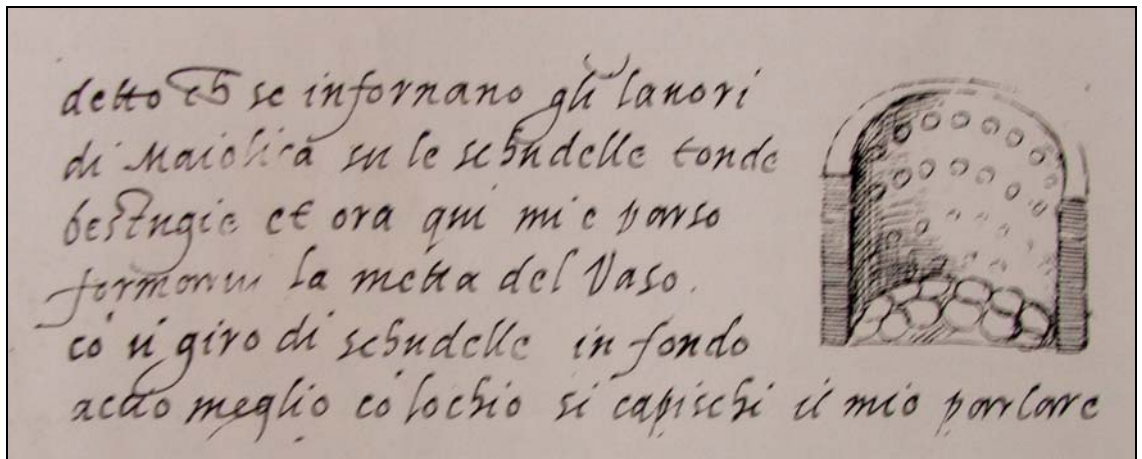 detto ch se infornano gli lauori
di Maiolica su le schudelle tonde
bestugie et ora qui mi e parso
formarui la metta del Vaso.
co ũ giro di schudelle in fondo
accio meglio co lochio si capischi il mio parlare